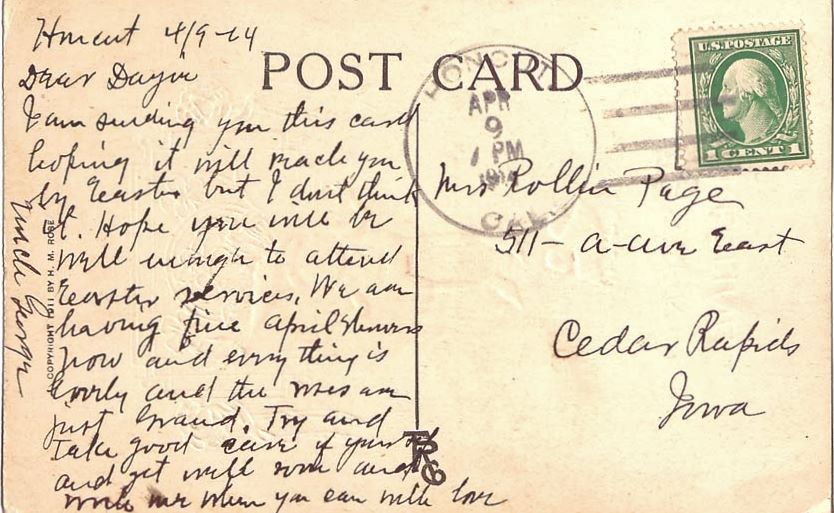 Honcut 4/9-14
Dear Dayie
I am sending you this card
hoping it will reach you
by Easter but I dont think
it. Hope you will be
well enough to attend
Easter services. We are
having fine April showers
now and everything is
lovely and the roses are
just Grand. Try and
take good care of yourself
and get well soon and
write me when you can with love
Uncle George
COPYRIGHT 1911 BY H. M. ROSE
POST CARD
HONCUT
APR
9
1 PM
1914
CAL.
U.S. POSTAGE
1 CENT 1
Mrs Rollin Page
511- A-Ave East
Cedar Rapids
Iowa